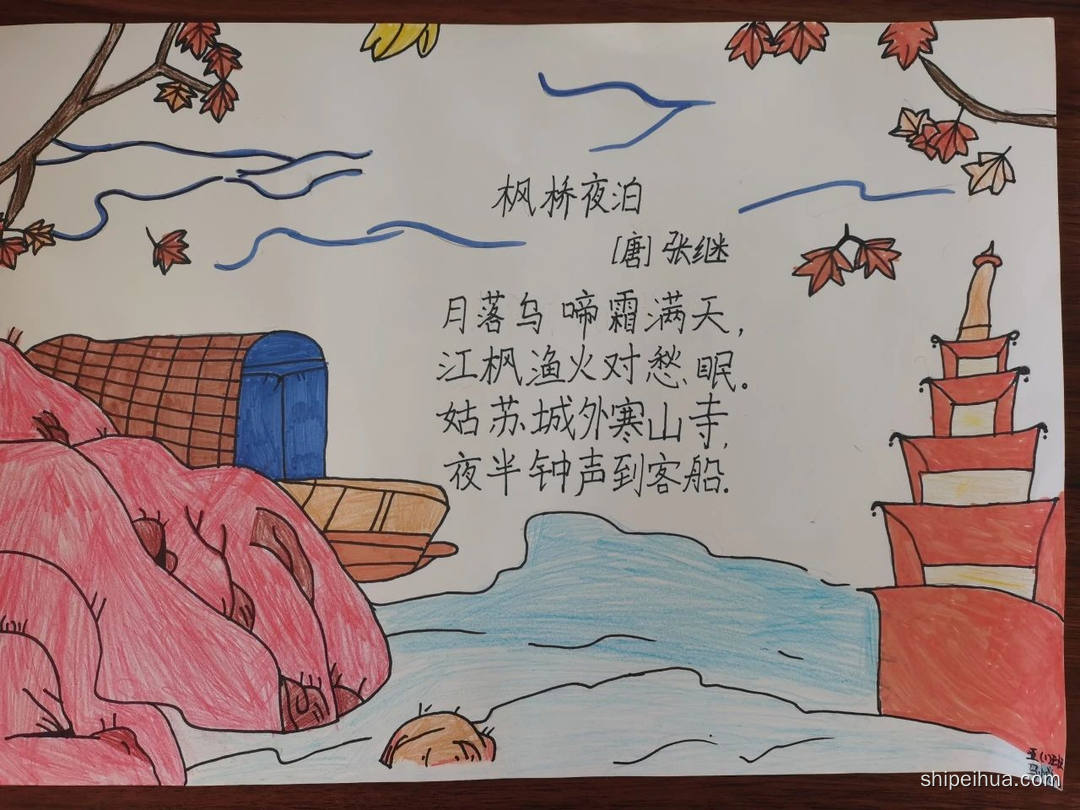 枫桥夜泊
[唐]张继
月落乌啼霜满天,
江枫渔火对愁眠。
姑苏城外寒山寺,
夜半钟声到客船.
shipeihua.com